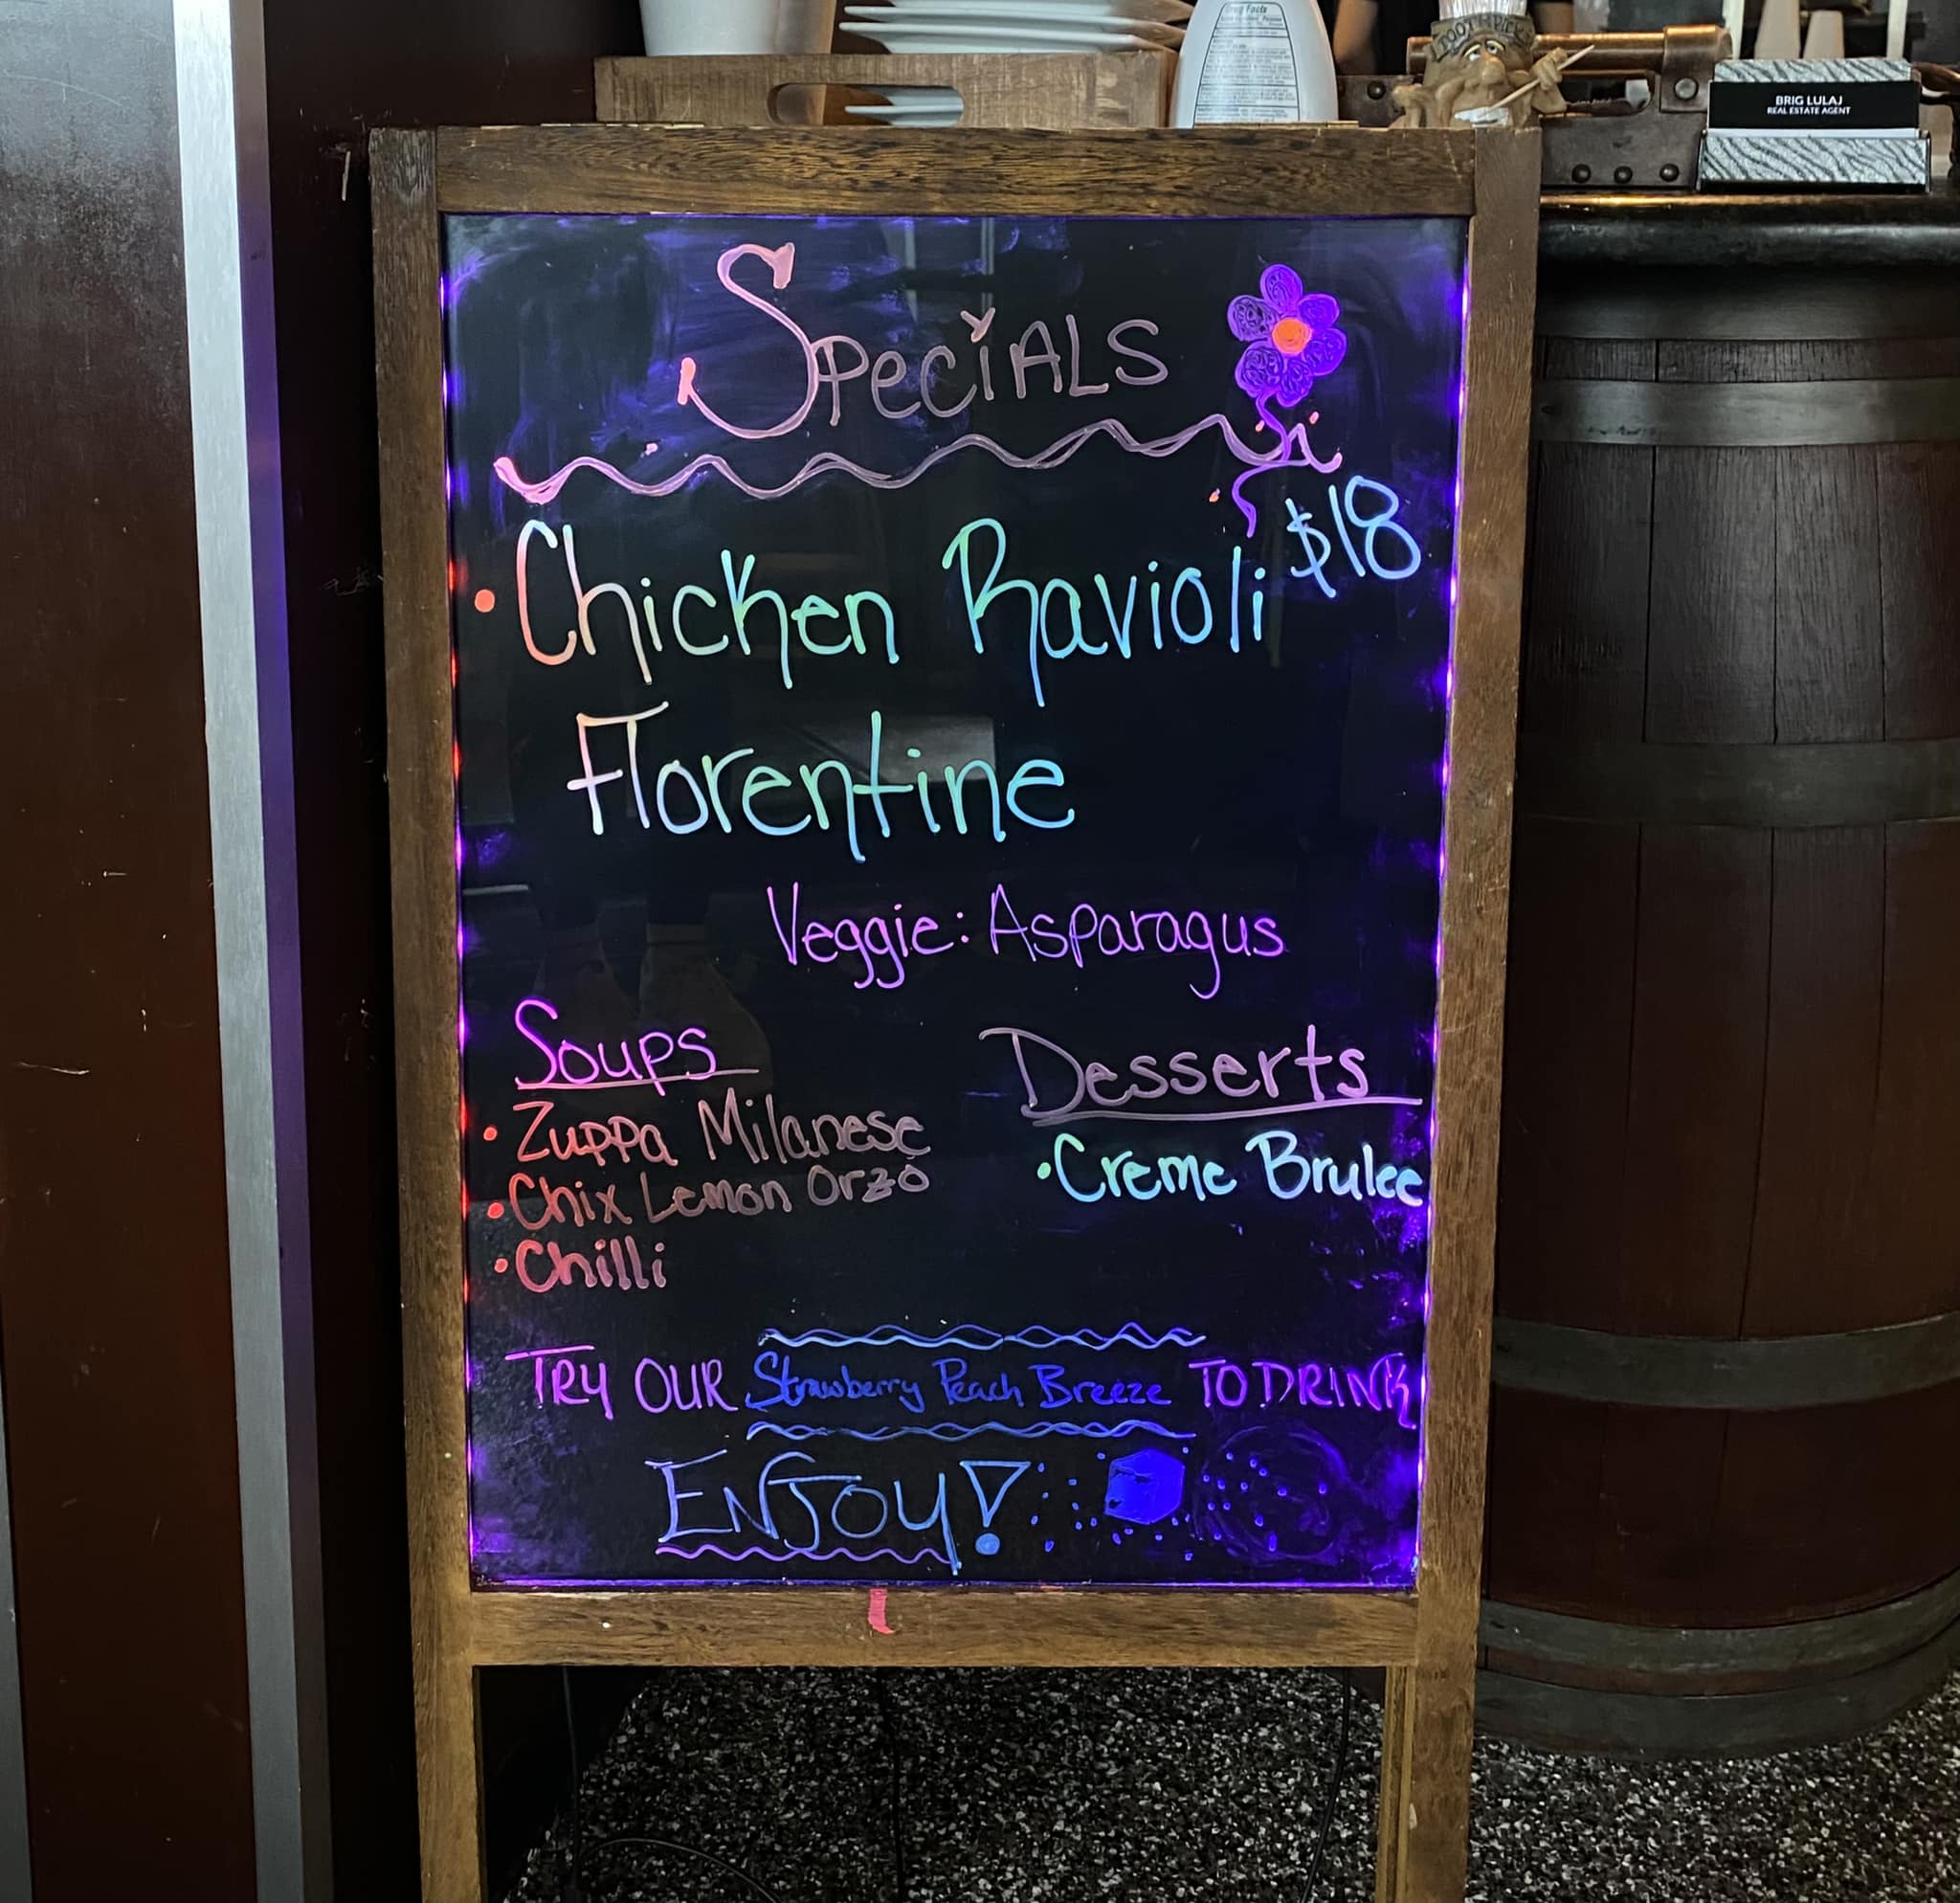 Drug Facts
TOOTHPICKS
BRIG LULAJ
REAL ESTATE AGENT
SPeciALS
• Chicken Ravioli $18
Florentine
Veggie: Asparagus
Soups
• Zuppa Milanese
• Chix Lemon Orzo
• Chilli
Desserts
• Creme Brulee
TRY OUR Strawberry Peach Breeze TO DRINK
ENJOY!